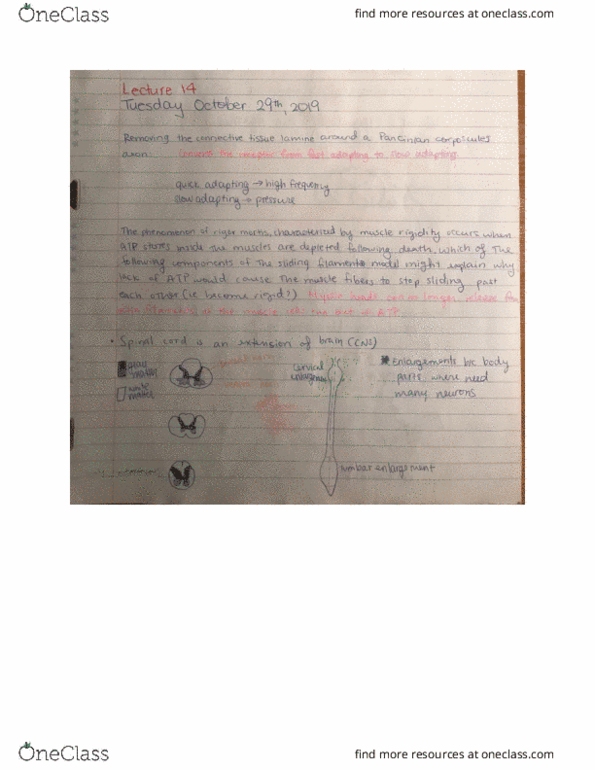 OneClass
find more resources at oneclass.com
Lecture 14
Tuesday October 29th, 2019
Removing the connective tissue lamine around a Pancinian corposcules
axon converts the receptor from fast adapting to slow adapting.
quick adapting → high frequency
slow adapting → pressure
The phenomenon of rigor mortis, characterized by muscle rigidity occurs when
ATP stores inside the muscles are depleted following death. Which of The
following components of The sliding filaments model might explain why
lack of ATP would cause The muscle fibers to stop sliding past
each other (ie become rigid?) Myosin heads can no longer release
the muscle out of ATP.
• Spinal cord is an extension of brain (CNS)
grey matter
white matter
cervical
enlargement
* Enlargements b/c body
parts where need
many neurons
lumbar enlargement
OneClass
find more resources at oneclass.com